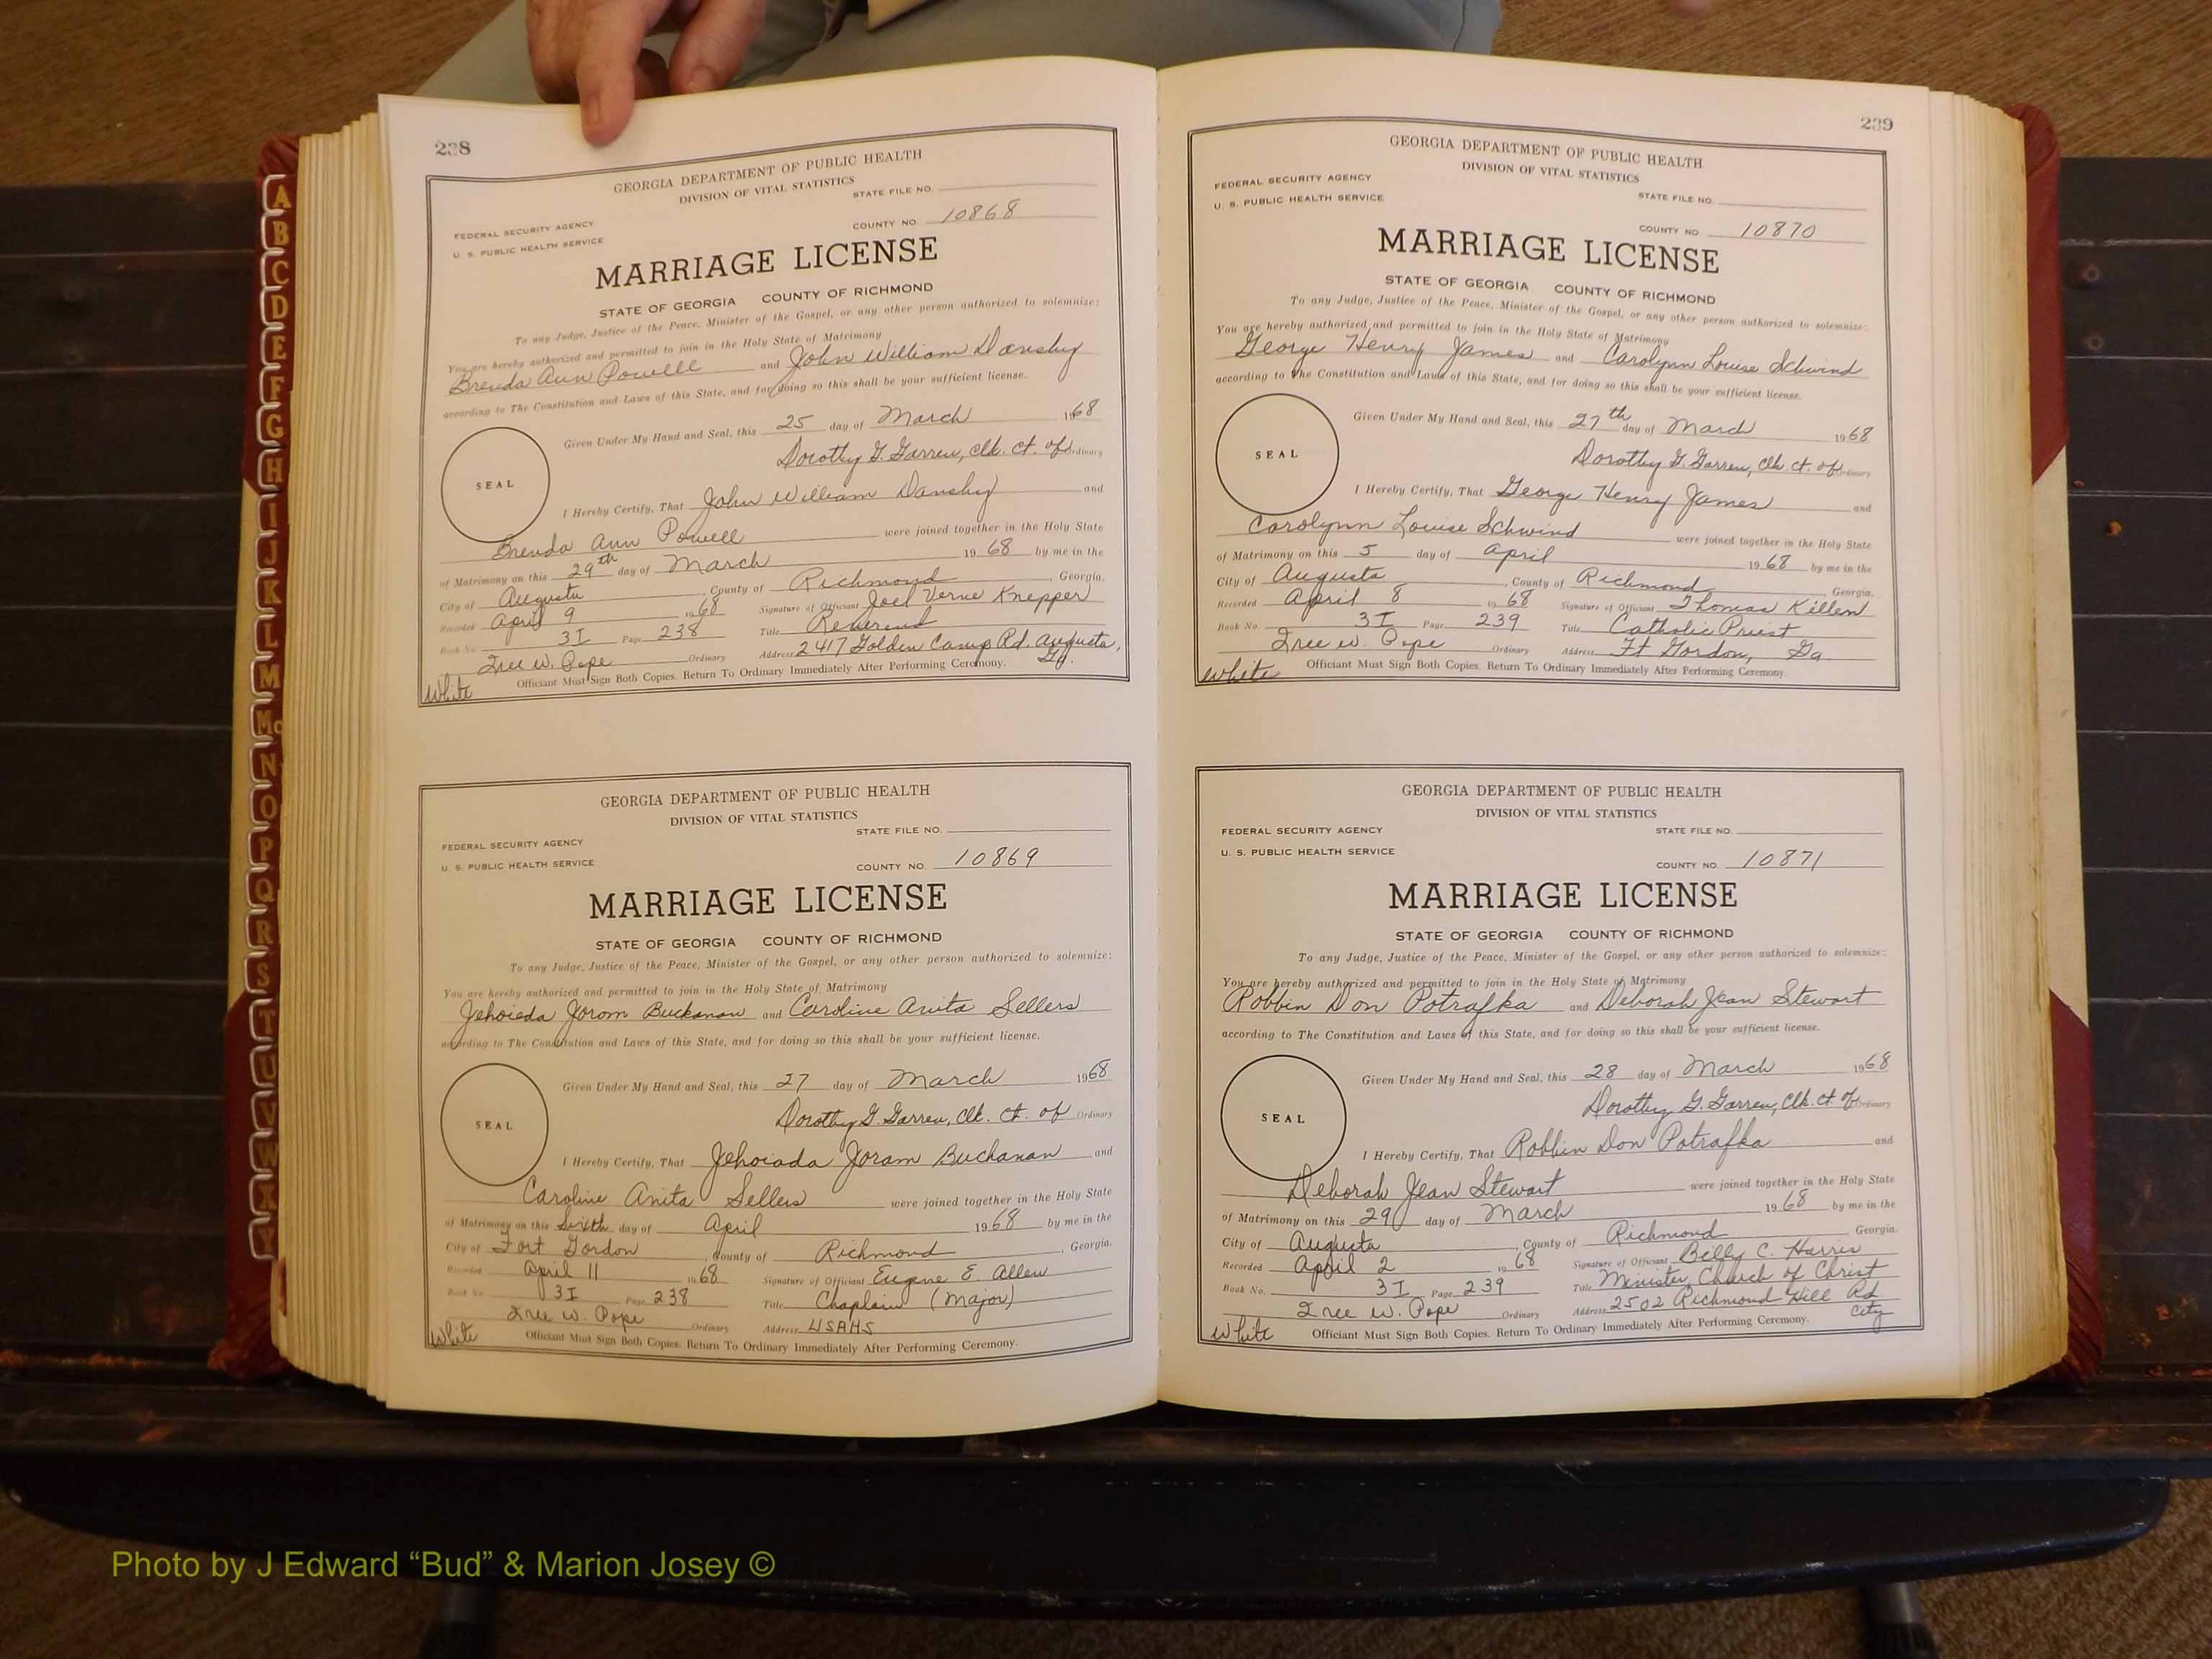 A
B
C
D
E
F
G
H
I
J
K
L
M
Mc
N
O
P
Q
R
S
T
U
V
W
X
Y
238
GEORGIA DEPARTMENT OF PUBLIC HEALTH
DIVISION OF VITAL STATISTICS
STATE FILE NO.
FEDERAL SECURITY AGENCY
U. S. PUBLIC HEALTH SERVICE
COUNTY NO. 10868
MARRIAGE LICENSE
STATE OF GEORGIA COUNTY OF RICHMOND
To any Judge, Justice of the Peace, Minister of the Gospel, or any other person authorized to solemnize:
You are hereby authorized and permitted to join in the Holy State of Matrimony
Brenda Ann Powell and John William Dansby
according to The Constitution and Laws of this State, and for doing so this shall be your sufficient license.
Given Under My Hand and Seal, this 25 day of March 1968
Dorothy G. Garren, Clk. Ct. of Ordinary
SEAL
I Hereby Certify, That John William Dansby and
Brenda Ann Powell were joined together in the Holy State
of Matrimony on this 29th day of March 19 68 by me in the
City of Augusta, County of Richmond, Georgia.
Recorded April 9 1968 Signature of Officiant Joel Verne Knepper
Book No. 3I Page 238 Title Reverend
Iree W. Pope Ordinary Address 2417 Golden Camp Rd. Augusta, Ga.
Officiant Must Sign Both Copies. Return To Ordinary Immediately After Performing Ceremony.
White
GEORGIA DEPARTMENT OF PUBLIC HEALTH
DIVISION OF VITAL STATISTICS
STATE FILE NO.
FEDERAL SECURITY AGENCY
U. S. PUBLIC HEALTH SERVICE
COUNTY NO. 10869
MARRIAGE LICENSE
STATE OF GEORGIA COUNTY OF RICHMOND
To any Judge, Justice of the Peace, Minister of the Gospel, or any other person authorized to solemnize:
You are hereby authorized and permitted to join in the Holy State of Matrimony
Jehoieda Jorom Buckanan and Caroline Anita Sellers
according to The Constitution and Laws of this State, and for doing so this shall be your sufficient license.
Given Under My Hand and Seal, this 27 day of March 1968
Dorothy G. Garren, Clk. Ct. of Ordinary
SEAL
I Hereby Certify, That Jehoiada Joram Buchanan and
Caroline Anita Sellers were joined together in the Holy State
of Matrimony on this Sixth day of April 1968 by me in the
City of Fort Gordon, County of Richmond, Georgia.
Recorded April 11 1968 Signature of Officiant Eugene E. Allen
Book No. 3I Page 238 Title Chaplain (Major)
Iree W. Pope Ordinary Address USAHS
Officiant Must Sign Both Copies. Return To Ordinary Immediately After Performing Ceremony.
White
239
GEORGIA DEPARTMENT OF PUBLIC HEALTH
DIVISION OF VITAL STATISTICS
FEDERAL SECURITY AGENCY
U. S. PUBLIC HEALTH SERVICE
STATE FILE NO.
COUNTY NO 10870
MARRIAGE LICENSE
STATE OF GEORGIA COUNTY OF RICHMOND
To any Judge, Justice of the Peace, Minister of the Gospel, or any other person authorized to solemnize:
You are hereby authorized and permitted to join in the Holy State of Matrimony
George Henry James and Carolynn Louise Schwind
according to the Constitution and Laws of this State, and for doing so this shall be your sufficient license.
Given Under My Hand and Seal, this 27th day of March 1968
Dorothy G. Garren, Clk. Ct. of Ordinary
SEAL
I Hereby Certify, That George Henry James and
Carolynn Louise Schwind were joined together in the Holy State
of Matrimony on this 5 day of April 1968 by me in the
City of Augusta, County of Richmond, Georgia.
Recorded April 8 1968 Signature of Officiant Thomas Killem
Book No. 3I Page 239 Title Catholic Priest
Iree W. Pope Ordinary Address Ft Gordon, Ga
Officiant Must Sign Both Copies. Return To Ordinary Immediately After Performing Ceremony.
White
GEORGIA DEPARTMENT OF PUBLIC HEALTH
DIVISION OF VITAL STATISTICS
FEDERAL SECURITY AGENCY
STATE FILE NO.
U. S. PUBLIC HEALTH SERVICE
COUNTY NO. 10871
MARRIAGE LICENSE
STATE OF GEORGIA COUNTY OF RICHMOND
To any Judge, Justice of the Peace, Minister of the Gospel, or any other person authorized to solemnize:
You are hereby authorized and permitted to join in the Holy State of Matrimony
Robbin Don Potrafka and Deborah Jean Stewart
according to The Constitution and Laws of this State, and for doing so this shall be your sufficient license.
Given Under My Hand and Seal, this 28 day of March 1968
Dorothy G. Garren, Clk. Ct. of Ordinary
SEAL
I Hereby Certify, That Robbin Don Potrafka and
Deborah Jean Stewart were joined together in the Holy State
of Matrimony on this 29 day of March 1968 by me in the
City of Augusta, County of Richmond Georgia.
Recorded April 2 1968 Signature of Officiant Billy C. Harris
Book No. 3I Page 239 Title Minister, Church of Christ
Iree W. Pope Ordinary Address 2502 Richmond Hill Rd City
Officiant Must Sign Both Copies. Return To Ordinary Immediately After Performing Ceremony.
White
Photo by J Edward “Bud” & Marion Josey ©